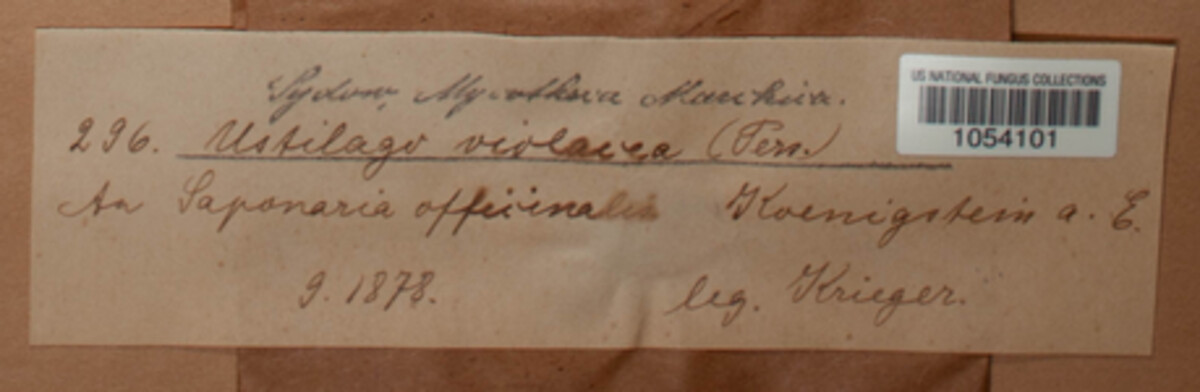 Sydow, Mycotheca Marchica.
US NATIONAL FUNGUS COLLECTIONS
1054101
296. Ustilago violacea (Pers.)
An Saponaria officinalis Koenigstein a. E.
9. 1878. leg. Krieger.